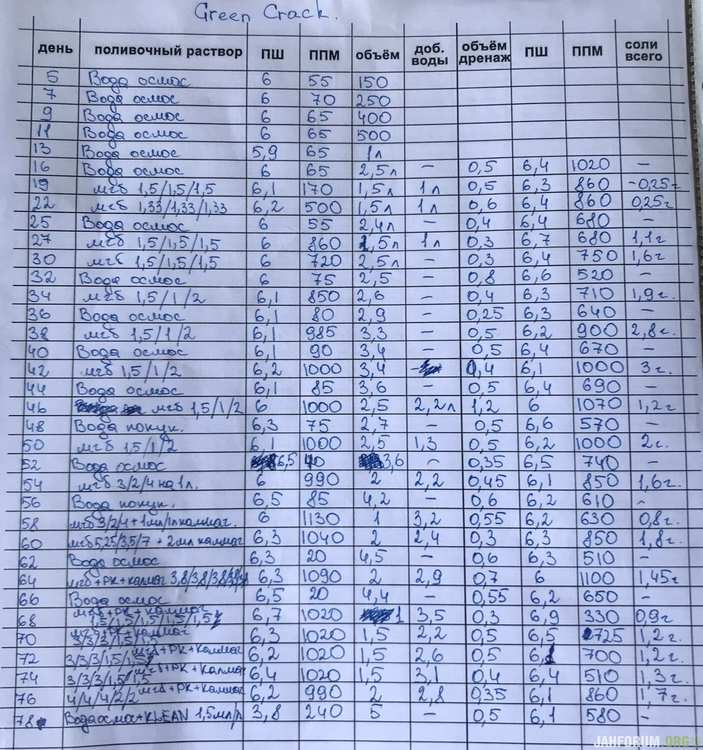 Green Crack.
день поливочный раствор ПШ ППМ объём доб. воды объём дренаж ПШ ППМ соли всего
5 Вода осмос 6 55 150
7 Вода осмос 6 70 250
9 Вода осмос 6 65 400
11 Вода осмос 6 65 500
13 Вода осмос 5,9 65 1л
16 Вода осмос 6 65 2,5л – 0,5 6,4 1020 –
19 мгб 1,5/1,5/1,5 6,1 170 1,5л 1л 0,5 6,3 860 -0,25г
22 мгб 1,33/1,33/1,33 6,2 500 1,5л 1л 0,6 6,4 860 0,25г
25 Вода осмос 6 55 2,4л – 0,4 6,4 680 –
27 мгб 1,5/1,5/1,5 6 860 1,5л 1л 0,3 6,7 680 1,1г
30 мгб 1,5/1,5/1,5 6 720 2,5л – 0,3 6,4 750 1,6г
32 Вода осмос 6 75 2,5 – 0,8 6,6 520 –
34 мгб 1,5/1/2 6,1 850 2,6 – 0,4 6,3 710 1,9г.
36 Вода осмос 6,1 80 2,9 – 0,25 6,3 640 –
38 мгб 1,5/1/2 6,1 985 3,3 – 0,5 6,2 900 2,8г.
40 Вода осмос 6,1 90 3,4 – 0,5 6,4 670 –
42 мгб 1,5/1/2 6,2 1000 3,4 0,4 6,1 1000 3г.
44 Вода осмос 6,1 85 3,6 – 0,5 6,4 690 –
46 мгб 1,5/1/2 6 1000 2,5 2,2л 1,2 6 1070 1,2г
48 Вода покук. 6,3 75 2,7 – 0,5 6,6 570 –
50 мгб 1,5/1/2 6,1 1000 2,5 1,3 0,5 6,2 1000 2г.
52 Вода осмос 6,5 3,6 – 0,35 6,5 740 –
54 мгб 3/2/4 на 1л. 6 990 2 2,2 0,45 6,1 850 1,6г.
56 Вода покук. 6,5 85 4,2 – 0,6 6,2 610 –
58 мгб 3/2/4 + 1мл/л калмаг. 6 1130 1 3,2 0,55 6,2 630 0,8г.
60 мгб 5,25/3,5/7 + 2мл калмаг 6,3 1040 2 2,4 0,3 6,3 850 1,8г.
62 Вода осмос 6,3 20 4,5 – 0,6 6,3 510 –
64 мгб+РК+калмаг 3,8/3,8/3,8 6,3 1090 2 2,9 0,7 6 1100 1,45г
66 Вода осмос 6,5 20 4,4 – 0,55 6,2 650 –
68 мгб+РК+калмаг 1,5/1,5/1,5/1,5/1,5 6,7 1020 1 3,5 0,3 6,9 330 0,9г
70 мгб+РК+калмаг 6,3 1020 1,5 2,2 0,5 6,5 725 1,2г.
72 3/3/3/1,5/1,5 мгб+РК+калмаг 6,2 1020 1,5 2,6 0,5 6,1 700 1,2г.
74 3/3/3/1,5/1,5 мгб+РК+калмаг 6,4 1020 1,5 3,1 0,4 6,4 510 1,3г.
76 4/4/4/2/2 мгб+РК+калмаг 6,2 990 2 2,8 0,35 6,1 860 1,7г.
78 Вода осмос+KLEAN 1,5мл/л 3,8 240 5 – 0,5 6,1 580 –
JAHFORUM.ORG